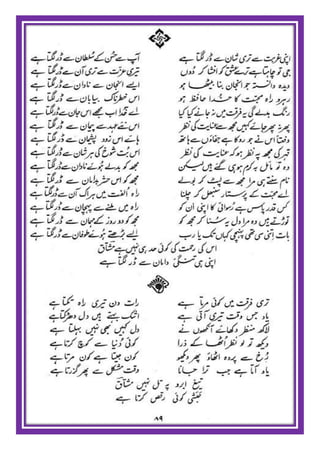 اپنی غربت سے تری شان سے ڈر لگتا ہے آپ سے حسن کے سلطان سے ڈر لگتا ہے
جی تو چاہتا ہے ترے عشق کو افشا کر دوں تیری عزت سے تری آن سے ڈر لگتا ہے
دیدہ و دانستہ جو انجان بنا بیٹھا ہو ایسے انجان سے نادان سے ڈر لگتا ہے
رہرو راہ محبت کا خدا حافظ ہو اس خطرناک بیابان سے ڈر لگتا ہے
رنگ بدلے گی یہ فرقت میں نہ جانے کیا کیا مجھے اس جان سے ڈر لگتا ہے
پھر نہ پھر جائے کہیں مجھ سے عنایت کی نظر اس نئے عہد سے پیمان سے ڈر لگتا ہے
دفعتاً اس نے جو روکا ہے جفاؤں سے ہاتھ ہائے اس زود پشیمان سے ڈر لگتا ہے
قہر کی مجھ پہ نظر ہو کہ عنایت کی نظر اس بت شوخ کی ہر شان سے ڈر لگتا ہے
وہ تو مائل بہ کرم ہو ہی گئے ہیں لیکن مجھ کو ہوئے نادان سے ڈر لگتا ہے
نام سنتے ہی مرا مجھ سے لپٹ کر بولے مجھ کو اس حشر بداماں سے ڈر لگتا ہے
اے محبت کے پرستار سنبھل کر چلنا راہ الفت میں ہر اک آن سے ڈر لگتا ہے
کس قدر پاس ہے رسوائی کا اپنی ان کو راہ میں ملنے سے پہچان سے ڈر لگتا ہے
توڑتے ہیں وہ مرا دل یہ سنا کر مجھ کو مجھ کو دو روز کے مہمان سے ڈر لگتا ہے
بات اتنی سی تھی پہنچی ہے کہاں تک یا رب ایسے بڑھتے ہوئے طوفان سے ڈر لگتا ہے
اس کی رحمت کی کوئی حد ہی نہیں ہے مشتاق
اپنی ہی تنگی دامان سے ڈر لگتا ہے
تری فرقت میں کوئی مرتا ہے رات دن تیری راہ تکتا ہے
یاد جس وقت تیری آتی ہے اشک بہتے ہیں دل دھڑکتا ہے
لاکھ منظر دکھائے آنکھوں نے دل کہیں بھی نہیں بہلتا ہے
دیکھ تو لو نظر اٹھا کے ذرا کوئی دنیا سے کوچ کرتا ہے
رخ سے پردہ اٹھاؤ پھر دیکھو کون جیتا ہے کون مرتا ہے
یاد آتا ہے جب ترا جانا وقت مشکل سے پھر گزرتا ہے
تیغ ابرو پہ تل نہیں مشتاق
حبشی کوئی رقص کرتا ہے
۸۹